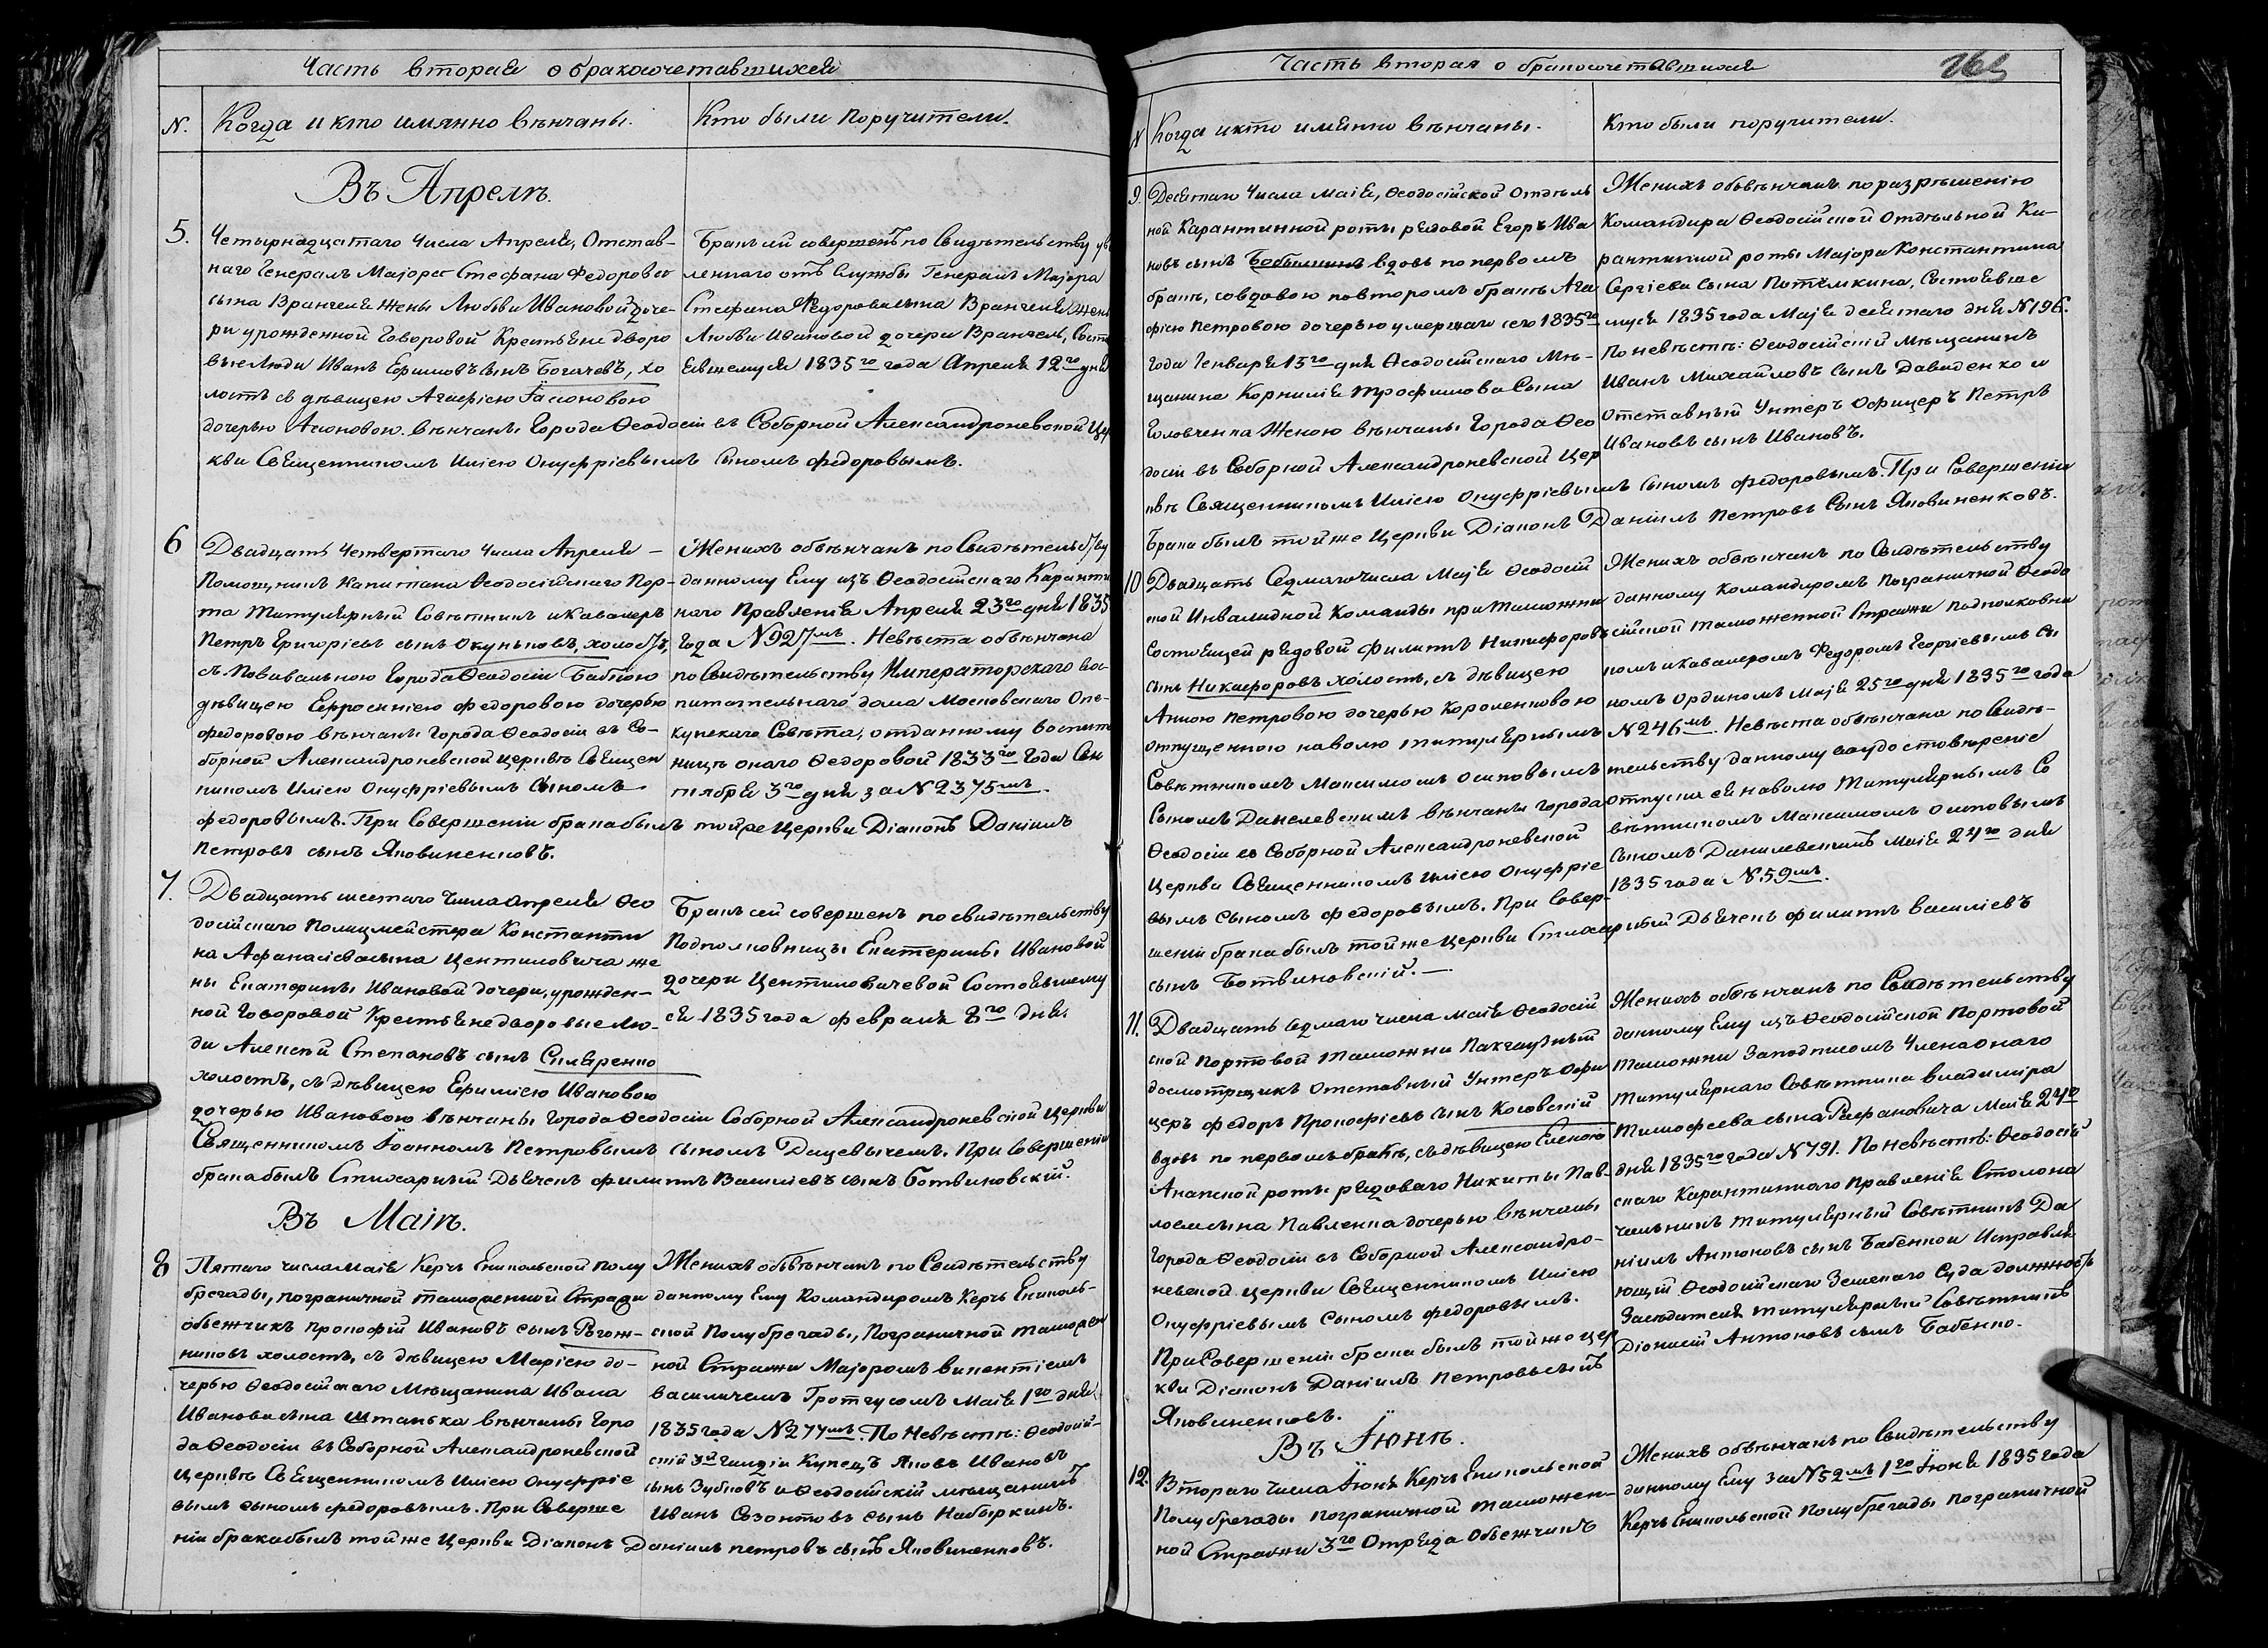 Часть вторая о бракосочетавшихся
N. Когда и кто имянно вѣнчаны. Кто были поручители.
Въ Апрелѣ.
5. Четырнадцатаго Числа Апреля, Отстав-
наго Генералъ Маіора Стефана Федорова
сына Врангеля жены Любви Ивановой доче-
ри урожденной Говоровой Крестьяне дворо
вые люди Иванъ Ефимовъ сынъ Богачевъ, хо
лостъ съ дѣвицею Агафіею
дочерью вѣнчаны Города Ѳеодосіи въ Соборной Александроневской Цер
кви Священникомъ Иліею Онуфріевымъ Сыномъ Федоровымъ.
Бракъ сей совершенъ по Свидѣтельству ув
леннаго отъ Службы Генералъ Маіора
Стефана Федорова сына Врангеля Жены
Любви Ивановой дочери Врангель, Состо
явшемуся 1835го года Апреля 12го дня
6 Двадцать Четвертаго Числа Апреля –
Помощникъ Капитана Ѳеодосійскаго Пор-
та Титулярный Совѣтникъ и Кавалеръ
Петръ Григорьевъ сынъ Окуньковъ, холостъ,
съ Повивальною Города Ѳеодосіи Бабкою
дѣвицею Ефросиніею Федоровою дочерью
Федоровою вѣнчаны Города Ѳеодосіи въ Со-
борной Александроневской церквѣ Священ
никомъ Иліею Онуфріевымъ Сыномъ
Федоровымъ. При Совершеніи брака былъ тойже Церкви Діаконъ Даніилъ
Петровъ сынъ Яновиненковъ.
Женихъ обвѣнчанъ по Свидѣтельству
данному Ему изъ Ѳеодосійскаго Каранти
наго Правленія Апреля 23го дня 1835
Года N 927мъ. Невѣста обвѣнчана
по Свидѣтельству Императорскаго вос-
питательнаго дома Московскаго Опе-
кунскаго Совѣта, отданному воспита
ницѣ онаго Ѳедоровой 1833го Года Сен
тября 3го дня за N 2375мъ.
7. Двадцать шестаго Числа Апреля Ѳео
досійскаго Полицмейстера Константи
на Афанасіева сына Центиловича же
ны Екатерины Ивановой дочери, урожден-
ной Говоровой Крестьяне дворовые Лю-
ди Алексѣй Степановъ сынъ Скляренко
холостъ, съ дѣвицею Ефиміею Ивановою
дочерью Ивановою вѣнчаны Города Ѳеодосіи Соборной Александроневской Церкви
Священникомъ Іоанномъ Петровымъ сыномъ Дацевичемъ. При Совершеніи
брака былъ Стихарный Дьячекъ Филиппъ Василіевъ сынъ Ботвиновскій.
Бракъ сей совершенъ по свидѣтельству
Подполковницы Екатерины Ивановой
дочери Центиловичевой Состоявшему
ся 1835 года февраля 8го дня.
Въ Маіѣ.
8 Пятаго числа Маія Керчь Еникольской полу
брегады, пограничной таможенной Стражи
объежчикъ Прокофій Ивановъ сынъ Рогож-
никовъ холостъ, съ дѣвицею Маріею до-
черью Ѳеодосійскаго Мѣщанина Ивана
Иванова сына Штанька вѣнчаны Горо
да Ѳеодосіи въ Соборной Александроневской
Церквѣ Священникомъ Иліею Онуфріе
вымъ сыномъ Федоровымъ. При Соверше
ніи брака былъ тойже Церкви Діаконъ Даніилъ Петровъ сынъ Яновиненковъ.
Женихъ обвѣнчанъ по Свидѣтельству
данному Ему Командиромъ Керчь Ениколь-
ской Полубрегады, Пограничной таможен
ной Стражи Маіоромъ Викентіемъ
Василичемъ Гротгусомъ Маія 1го дня
1835 года N 277мъ. По Невѣстѣ: Ѳеодосій-
скій 3й Гильдіи Купецъ Яковъ Ивановъ
сынъ Зубковъ и Ѳеодосійскій мѣщанинъ
Иванъ Созонтовъ сынъ Набыркинъ.
Часть вторая о бракосочетавшихся
N Когда и кто имянно вѣнчаны. Кто были поручители.
9. Десятаго Числа Маія, Ѳеодосійской Отдѣль
ной Карантинной роты рядовой Егоръ Ива
новъ сынъ вдовъ по первомъ
бракѣ, со вдовою по второмъ бракѣ Ага
фіею Петровою дочерью умершаго сего 1835го
Года Генваря 15го дня Ѳеодосійскаго Мѣ-
щанина Корнилія Трофимова Сына
Головченка Женою вѣнчаны Города Ѳео
досіи въ Соборной Александроневской Цер
квѣ Священникомъ Иліею Онуфріевымъ Сыномъ Федоровымъ. При Совершеніи
Брака былъ тойже Церкви Діаконъ Даніилъ Петровъ Сынъ Яновиненковъ.
Женихъ обвѣнчанъ по разрѣшенію
Командира Ѳеодосійской Отдѣльной Ка-
рантинной роты Маіора Константина
Сергіева Сына Потёмкина, Состоявше
муся 1835 года Маія десятаго дня N 196.
По невѣстѣ: Ѳеодосійскій Мѣщанинъ
Иванъ Михайловъ сынъ Давиденко и
Отставный Унтеръ Офицеръ Петръ
Ивановъ сынъ Ивановъ.
10 Двадцать Седмаго числа Маія Ѳеодосій
ской Инвалидной Команды при Таможни
Состоящей рядовой Филиппъ Никифоровъ
сынъ Никифоровъ холостъ, съ дѣвицею
Анною Петровою дочерью Короленковою
отпущенною на волю титулярнымъ
Совѣтникомъ Максимомъ Осиповымъ
Сыномъ Данилевскимъ вѣнчаны Города
Ѳеодосіи въ Соборной Александроневской
Церкви Священникомъ Иліею Онуфріе
вымъ Сыномъ Федоровымъ. При Совер-
шеніи брака былъ тойже Церкви Стихарный Дьячекъ Филиппъ Василіевъ
сынъ Ботвиновскій. —
Женихъ обвѣнчанъ по Свидѣтельству
данному Командиромъ Пограничной Ѳеодо
сійской таможенной Стражи подполковни
комъ и Кавалеромъ Федоромъ Георгіевымъ Сы
номъ Ординомъ Маія 25го дня 1835го года
N 246мъ. Невѣста обвѣнчана по Свидѣ-
тельству данному во удостовѣреніе
отпуска ея на волю Титулярнымъ Со
вѣтникомъ Максимомъ Осиповымъ
Сыномъ Данилевскимъ Маія 24го дня
1835 года N 59мъ.
11. Двадцать Седмаго числа Маія Ѳеодосій
ской Портовой Таможни Пакгаузный
досмотрщикъ отставный Унтеръ Офи
церъ Федоръ Прокофіевъ сынъ Косовскій
вдовъ по первомъ бракѣ, съ дѣвицею Еленою
Анапской роты рядоваго Никиты Пав-
лова сына Павленка дочерью вѣнчаны
Города Ѳеодосіи въ Соборной Александро-
невской церкви Священникомъ Иліею
Онуфріевымъ Сыномъ Федоровымъ.
При Совершеніи брака былъ тойже цер
кви Діаконъ Даніилъ Петровъ сынъ
Яновиненковъ.
Женихъ обвѣнчанъ по Свидѣтельству
данному Ему изъ Ѳеодосійской Портовой
Таможни За подписомъ Члена онаго
Титулярнаго Совѣтника Владимира
Тимофеева сына Рафановича Маія 24го
дня 1835го года N 791. По невѣстѣ: Ѳеодосій
скаго Карантиннаго Правленія Столона
чальникъ титулярный Совѣтникъ Да
ніилъ Антоновъ сынъ Бабенко и Исправля
ющій Ѳеодосійскаго Земскаго Суда должность
Засѣдателя титулярный Совѣтникъ
Діонисій Антоновъ сынъ Бабенко.
Въ Іюнѣ.
12. Втораго Числа Іюня Керчь Еникольской
Полубрегады пограничной таможен-
ной Стражи 3го Отряда Объежчикъ
Женихъ обвѣнчанъ по Свидѣтельству
данному Ему за N 52мъ 1го Іюня 1835 года
Керчь Еникольской Полубрегады пограничной